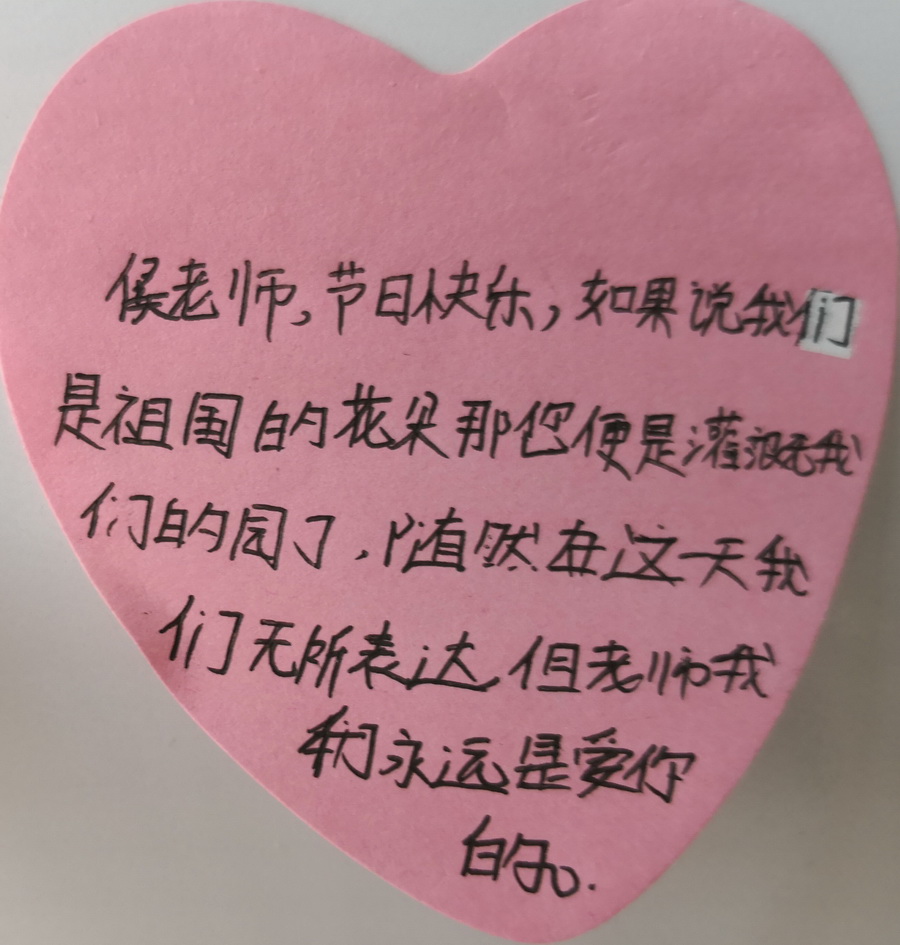 侯老师,节日快乐,如果说我们
是祖国的花朵那您便是灌溉无我
们的园丁,随然在这一天我
们无所表达,但老师我
们永远是爱你
的。